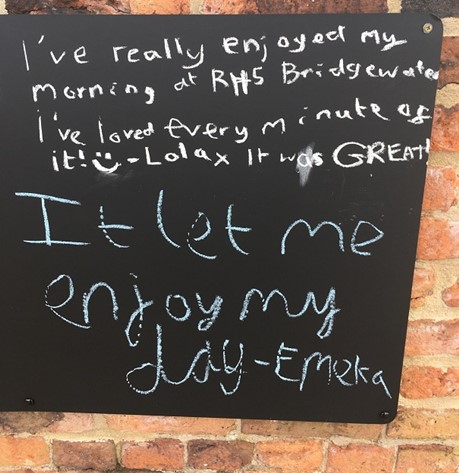 I've really enjoyed my
morning at RHS Bridgewater
I've loved every minute of
it! - Lola x It was GREAT!
It let me
enjoy my
day - Emeka